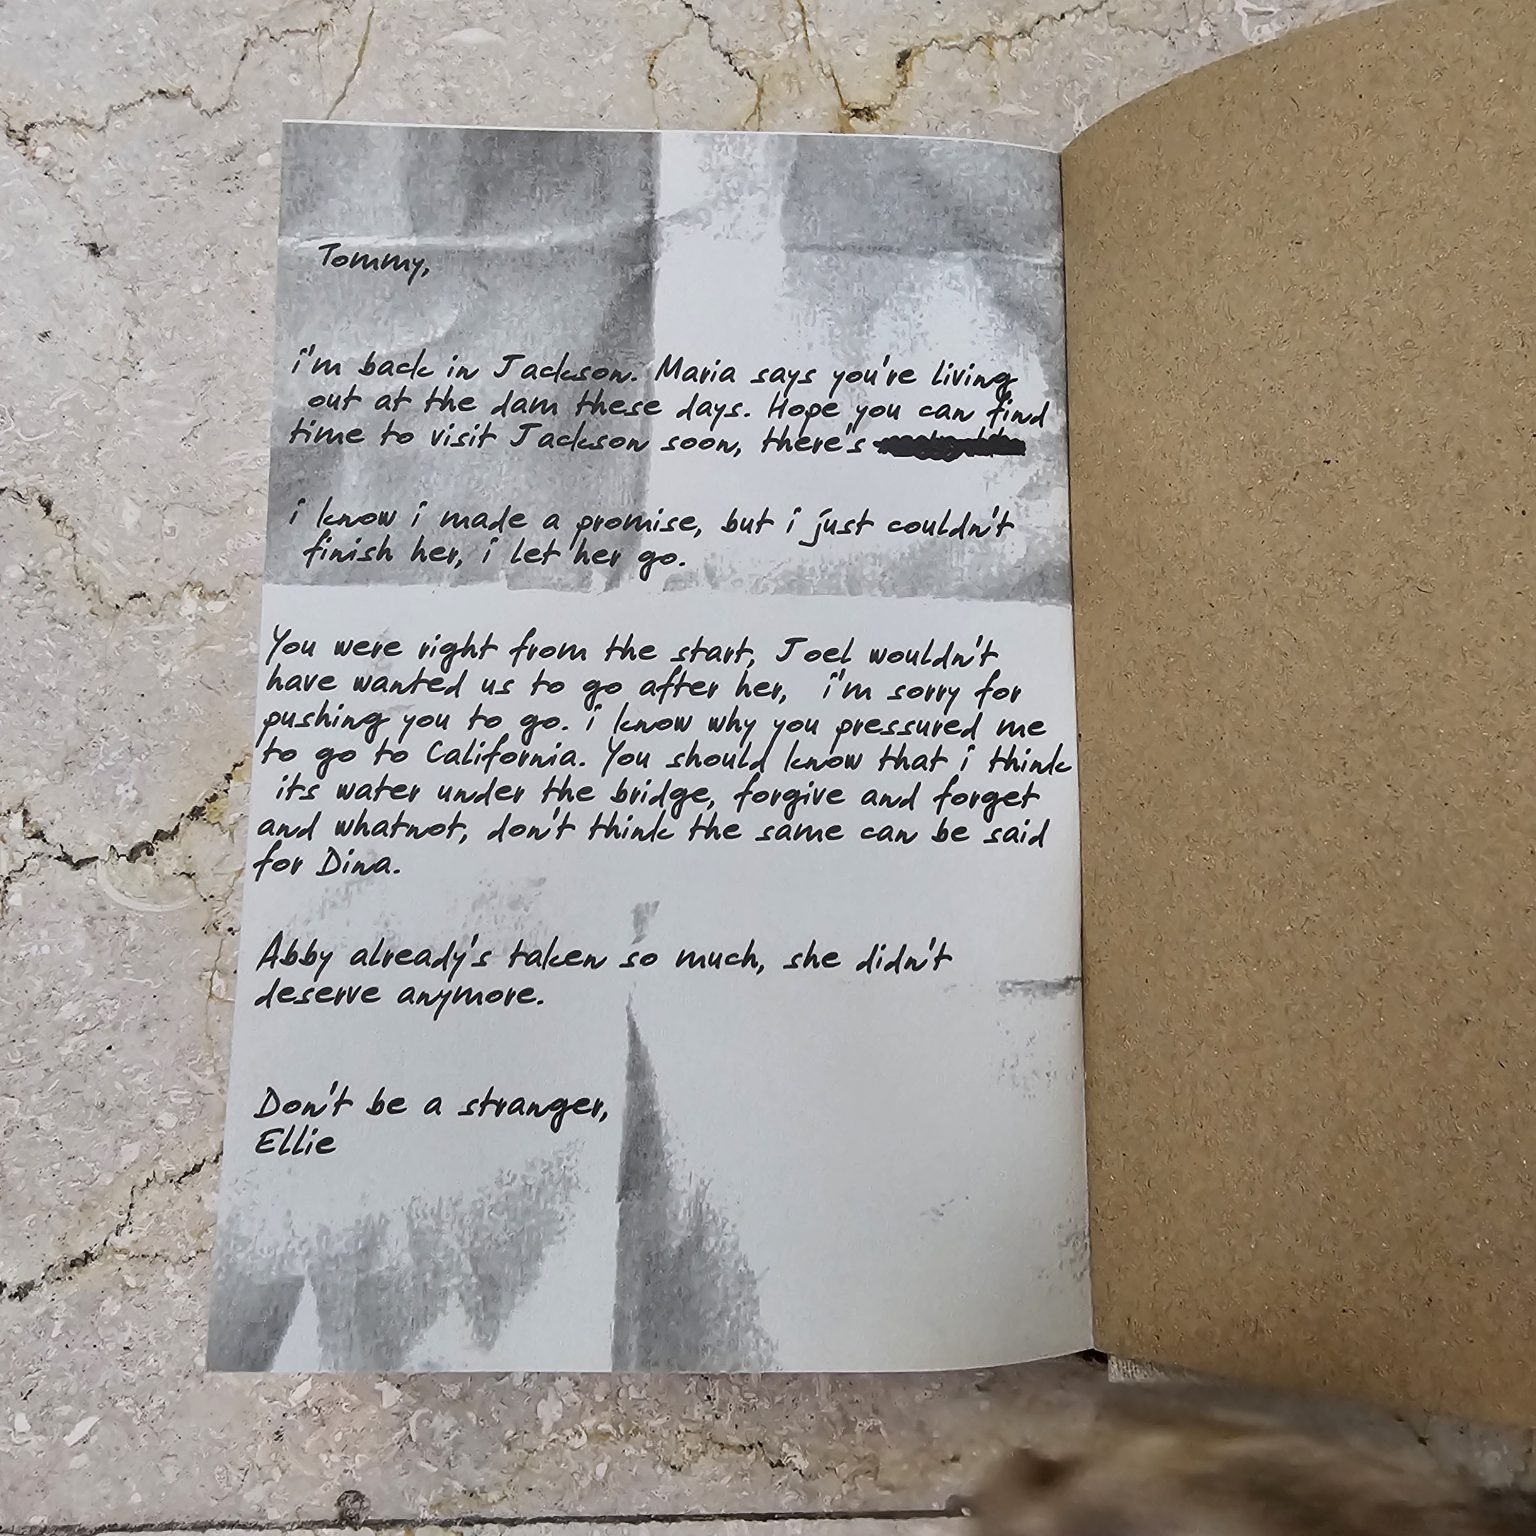 Tommy,
i'm back in Jackson. Maria says you're living
out at the dam these days. Hope you can find
time to visit Jackson soon, there's
i know i made a promise, but i just couldn't
finish her, i let her go.
You were right from the start, Joel wouldn't
have wanted us to go after her, i'm sorry for
pushing you to go. i know why you pressured me
to go to California. You should know that i think
its water under the bridge, forgive and forget
and whatnot, don't think the same can be said
for Dina.
Abby already's taken so much, she didn't
deserve anymore.
Don't be a stranger,
Ellie